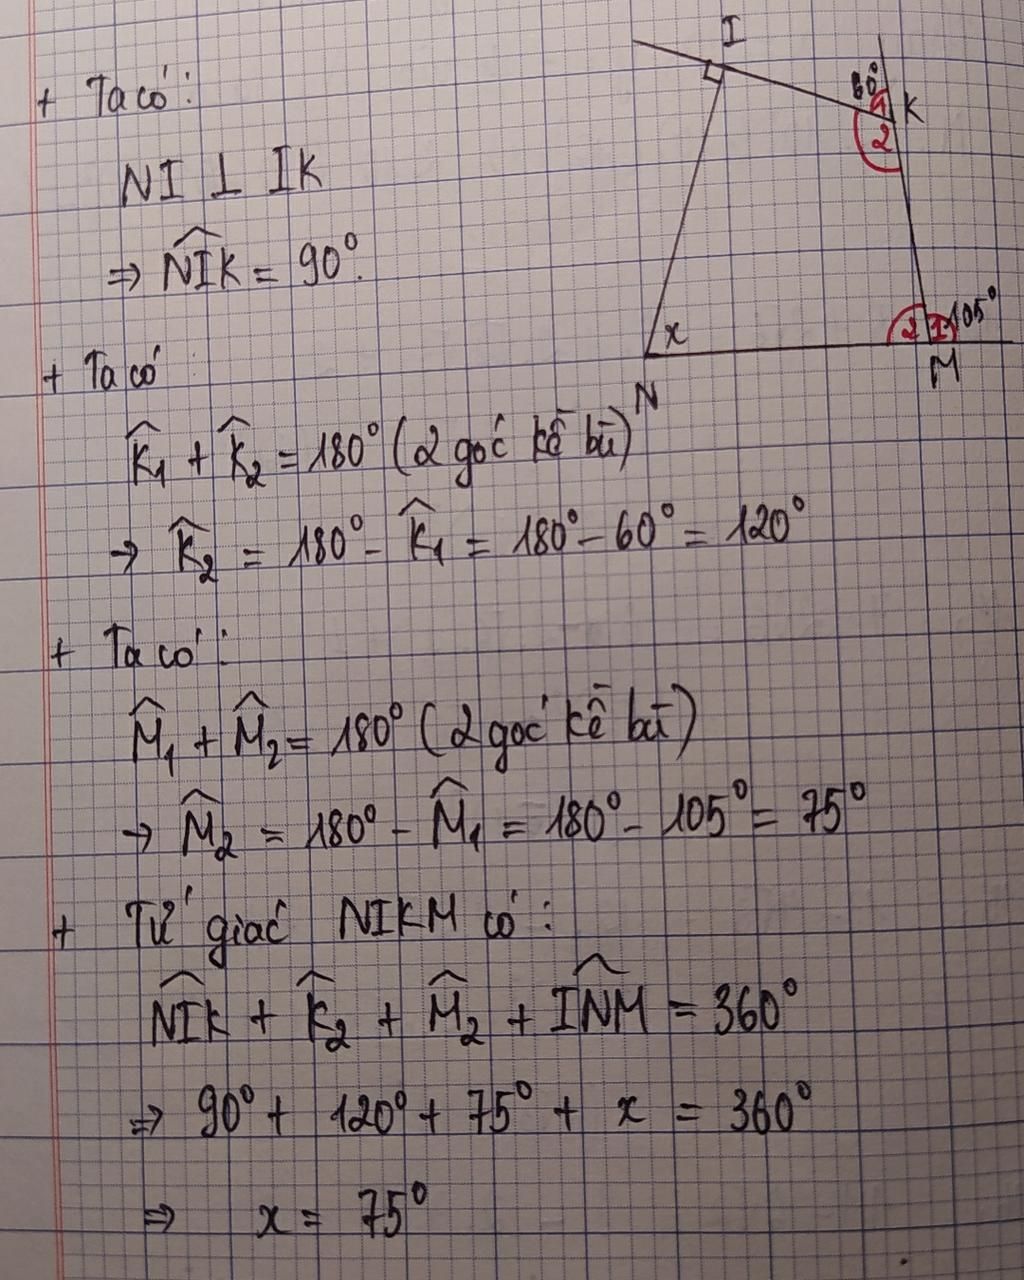 + Ta có:
NI ⊥ IK
⇒ \widehat{NIK} = 90°.
+ Ta có
\widehat{K}₁ + \widehat{K}₂ = 180° (2 góc kề bù)
→ \widehat{K}₂ = 180° - \widehat{K}₁ = 180° - 60° = 120°
+ Ta có:
\widehat{M}₁ + \widehat{M}₂ = 180° (2 góc kề bù)
→ \widehat{M}₂ = 180° - \widehat{M}₁ = 180° - 105° = 75°
+ Tứ giác NIKM có:
\widehat{NIK} + \widehat{K}₂ + \widehat{M}₂ + \widehat{INM} = 360°
⇒ 90° + 120° + 75° + x = 360°
⇒ x = 75°
I
60°
1
K
2
x
2
1
105°
N
M